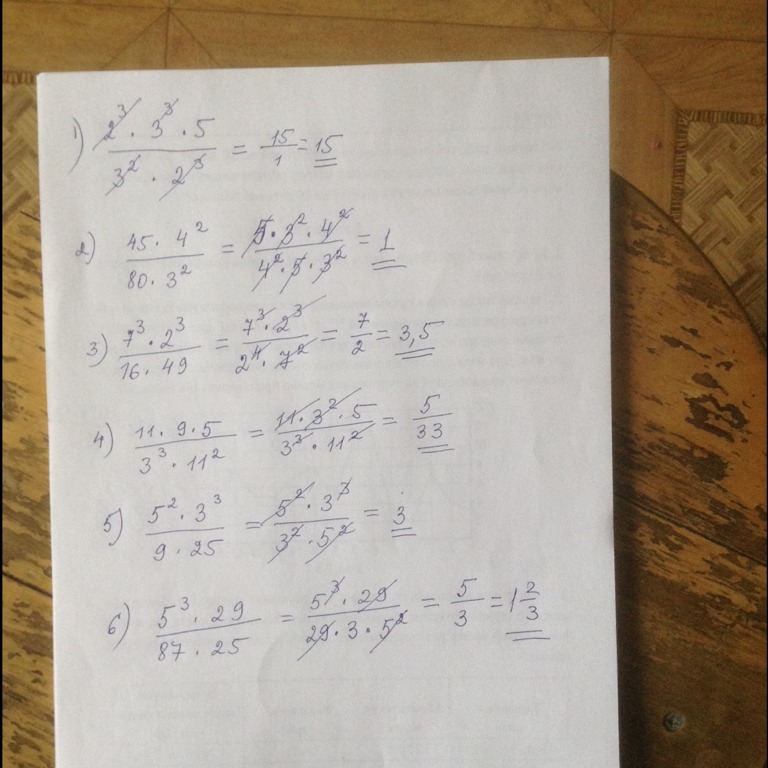 1) 2³ · 3³ · 5 / 3² · 2³ = 15/1 = 15
2) 45 · 4² / 80 · 3² = 5 · 3² · 4² / 4² · 5 · 3² = 1
3) 7³ · 2³ / 16 · 49 = 7³ · 2³ / 2⁴ · 7² = 7/2 = 3,5
4) 11 · 9 · 5 / 3³ · 11² = 11 · 3² · 5 / 3³ · 11² = 5/33
5) 5² · 3³ / 9 · 25 = 5² · 3³ / 3² · 5² = 3
6) 5³ · 29 / 87 · 25 = 5³ · 29 / 29 · 3 · 5² = 5/3 = 1 2/3